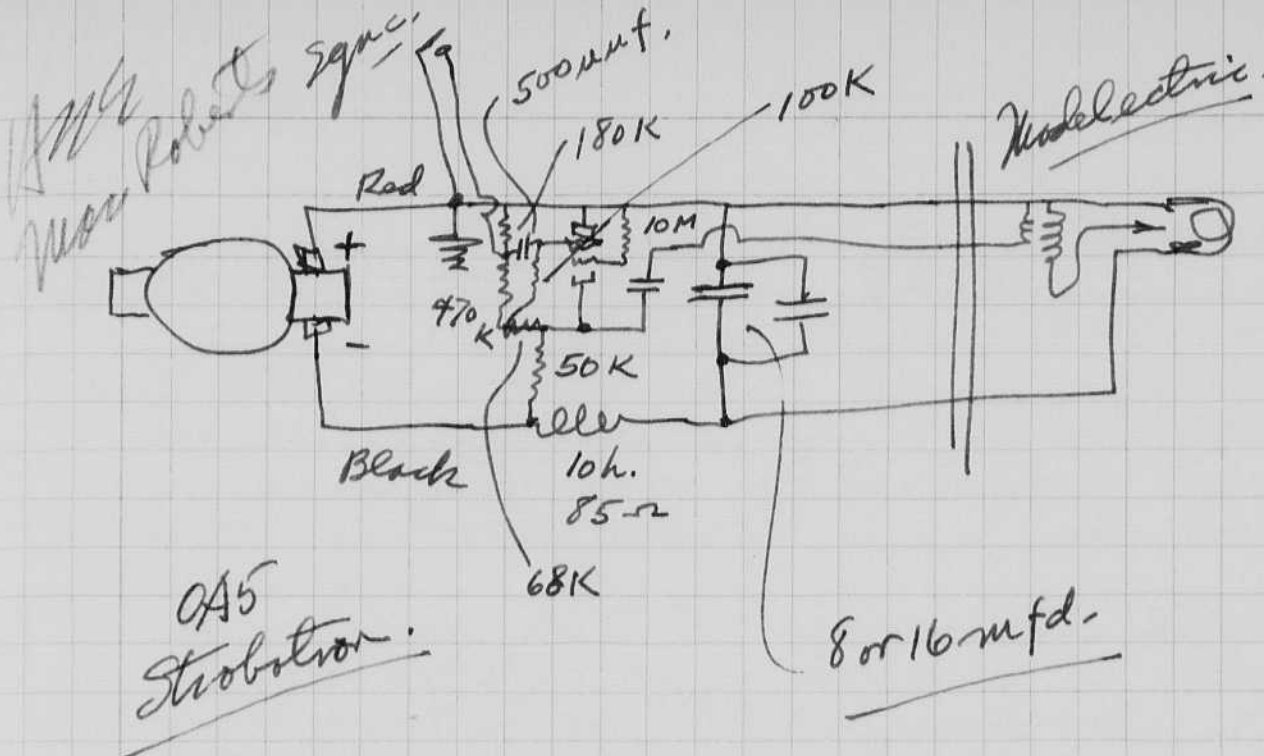 Roberts
Sync.
500 uuf.
180K
100K
Modelectric.
Red
+
10M
470
K
-
50K
Black
10h.
85Ω
68K
0A5
Strobotron.
8 or 16 mfd.